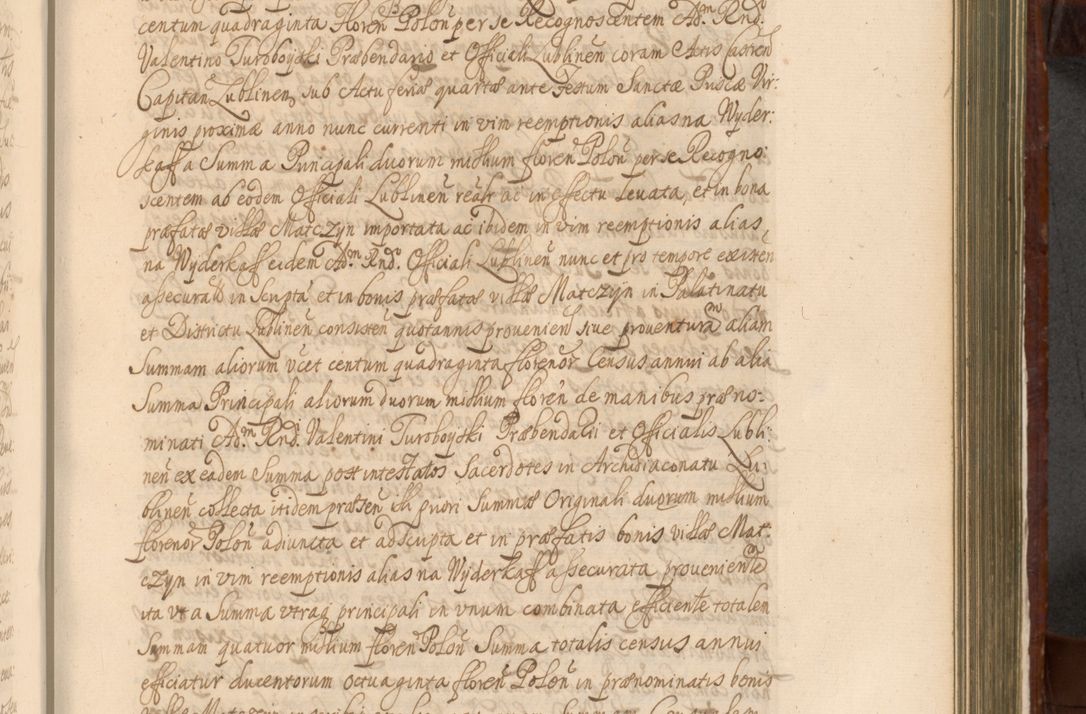 centum quadraginta floren̄ Polon̄ per se Recognoscentem Adm̄ Rnd.
Valentino Turoboyski Præbendario et Officiali Lublinen̄ coram Actis Castren̄
Capitan̄ Lublinen̄ sub Actu feriæ quartæ ante Festum Sanctæ Priscæ Vir:
ginis proximæ anno nunc currenti in vim reemptionis alias na Wyder:
kaff a Summa Principali duorum millium floren̄ Polon̄ per se Recogno:
scentem ab eodem Officiali Lublinen̄ realr ac in effectu levata, et in bona
præfatæ villæ Matczyn importata ac ibidem in vim reemptionis alias
na Wyderkaff eidem Adm̄ Rndo. Officiali Lublinen̄ nunc et pro tempore existen̄
assecurata in scripta et in bonis præfatæ villæ Matczyn in Palatinatu
et Districtu Lublinen̄ consisten̄ quotannis provenien̄ sive proventuram aliam
Summam aliorum vcet centum quadraginta florenor Census annui ab alia
Summa Principali aliorum duorum millium floren̄ de manibus præno:
minati Adm̄ Rndi Valentini Turoboyski Præbendarii et Officialis Lubli:
nen̄ ex eadem Summa post intestatos Sacerdotes in Archidiaconatu Lu:
blinen̄ collecta itidem præsen̄ illi priori Summæ Originali duorum millium
florenor Polon̄ adiuncta et adscripta et in præfatis bonis villæ Mat:
czyn in vim reemptionis alias na Wyderkaff assecurata proveniente
ita vt a Summa vtraq principali in vnum combinata efficiente totalem
Summam quatuor millium floren̄ Polon̄ Summa totalis census annui
efficiatur ducentorum octuaginta floren̄ Polon̄ in prænominatis bonis